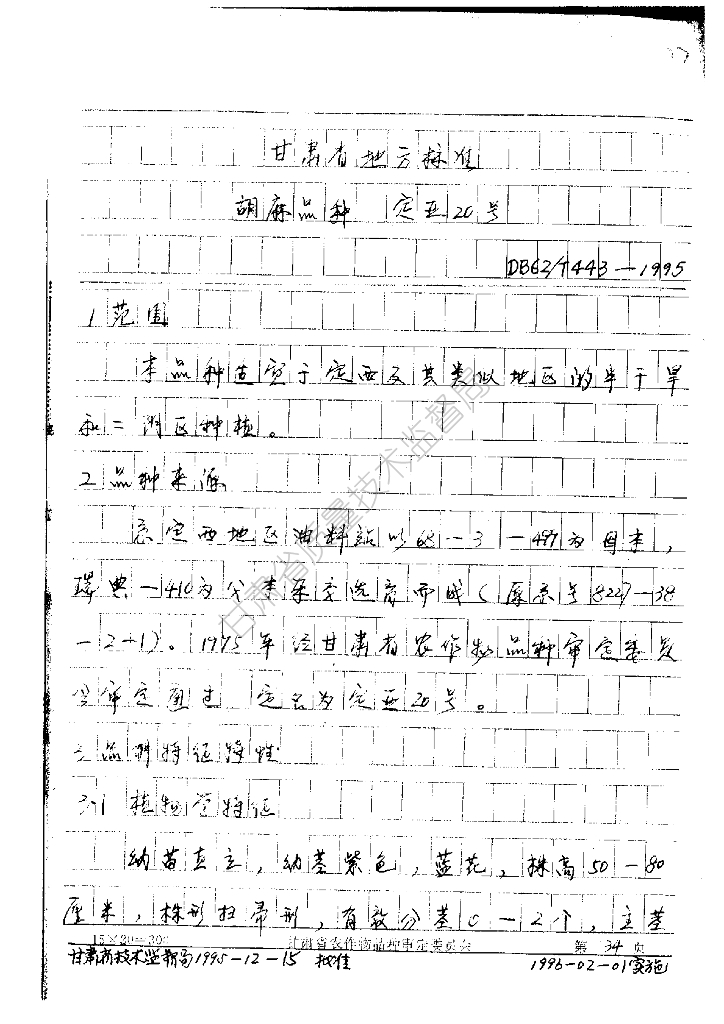 甘肃省地方标准
胡麻品种 定亚20号
DB62/T443—1995
1 范围
本品种适宜于定西及其类似地区的半干旱
和二阴区种植。
2 品种来源
系定西地区油料站以68—3—487为母本，
瑞典—410为父本杂交选育而成（原系号8227—38
—2—1）。1995年经甘肃省农作物品种审定委员
会审定通过 定名为定亚20号。
3 品种特征特性
3·1 植物学特征
幼苗直立，幼茎紫色，蓝花，株高50—80
厘米，株形扫帚形，有效分茎0—2个，主茎
15×20=300 甘肃省农作物品种审定委员会 第 34 页
甘肃省技术监督局1995-12-15 批准 1996-02-01实施
甘肃省质量技术监督局